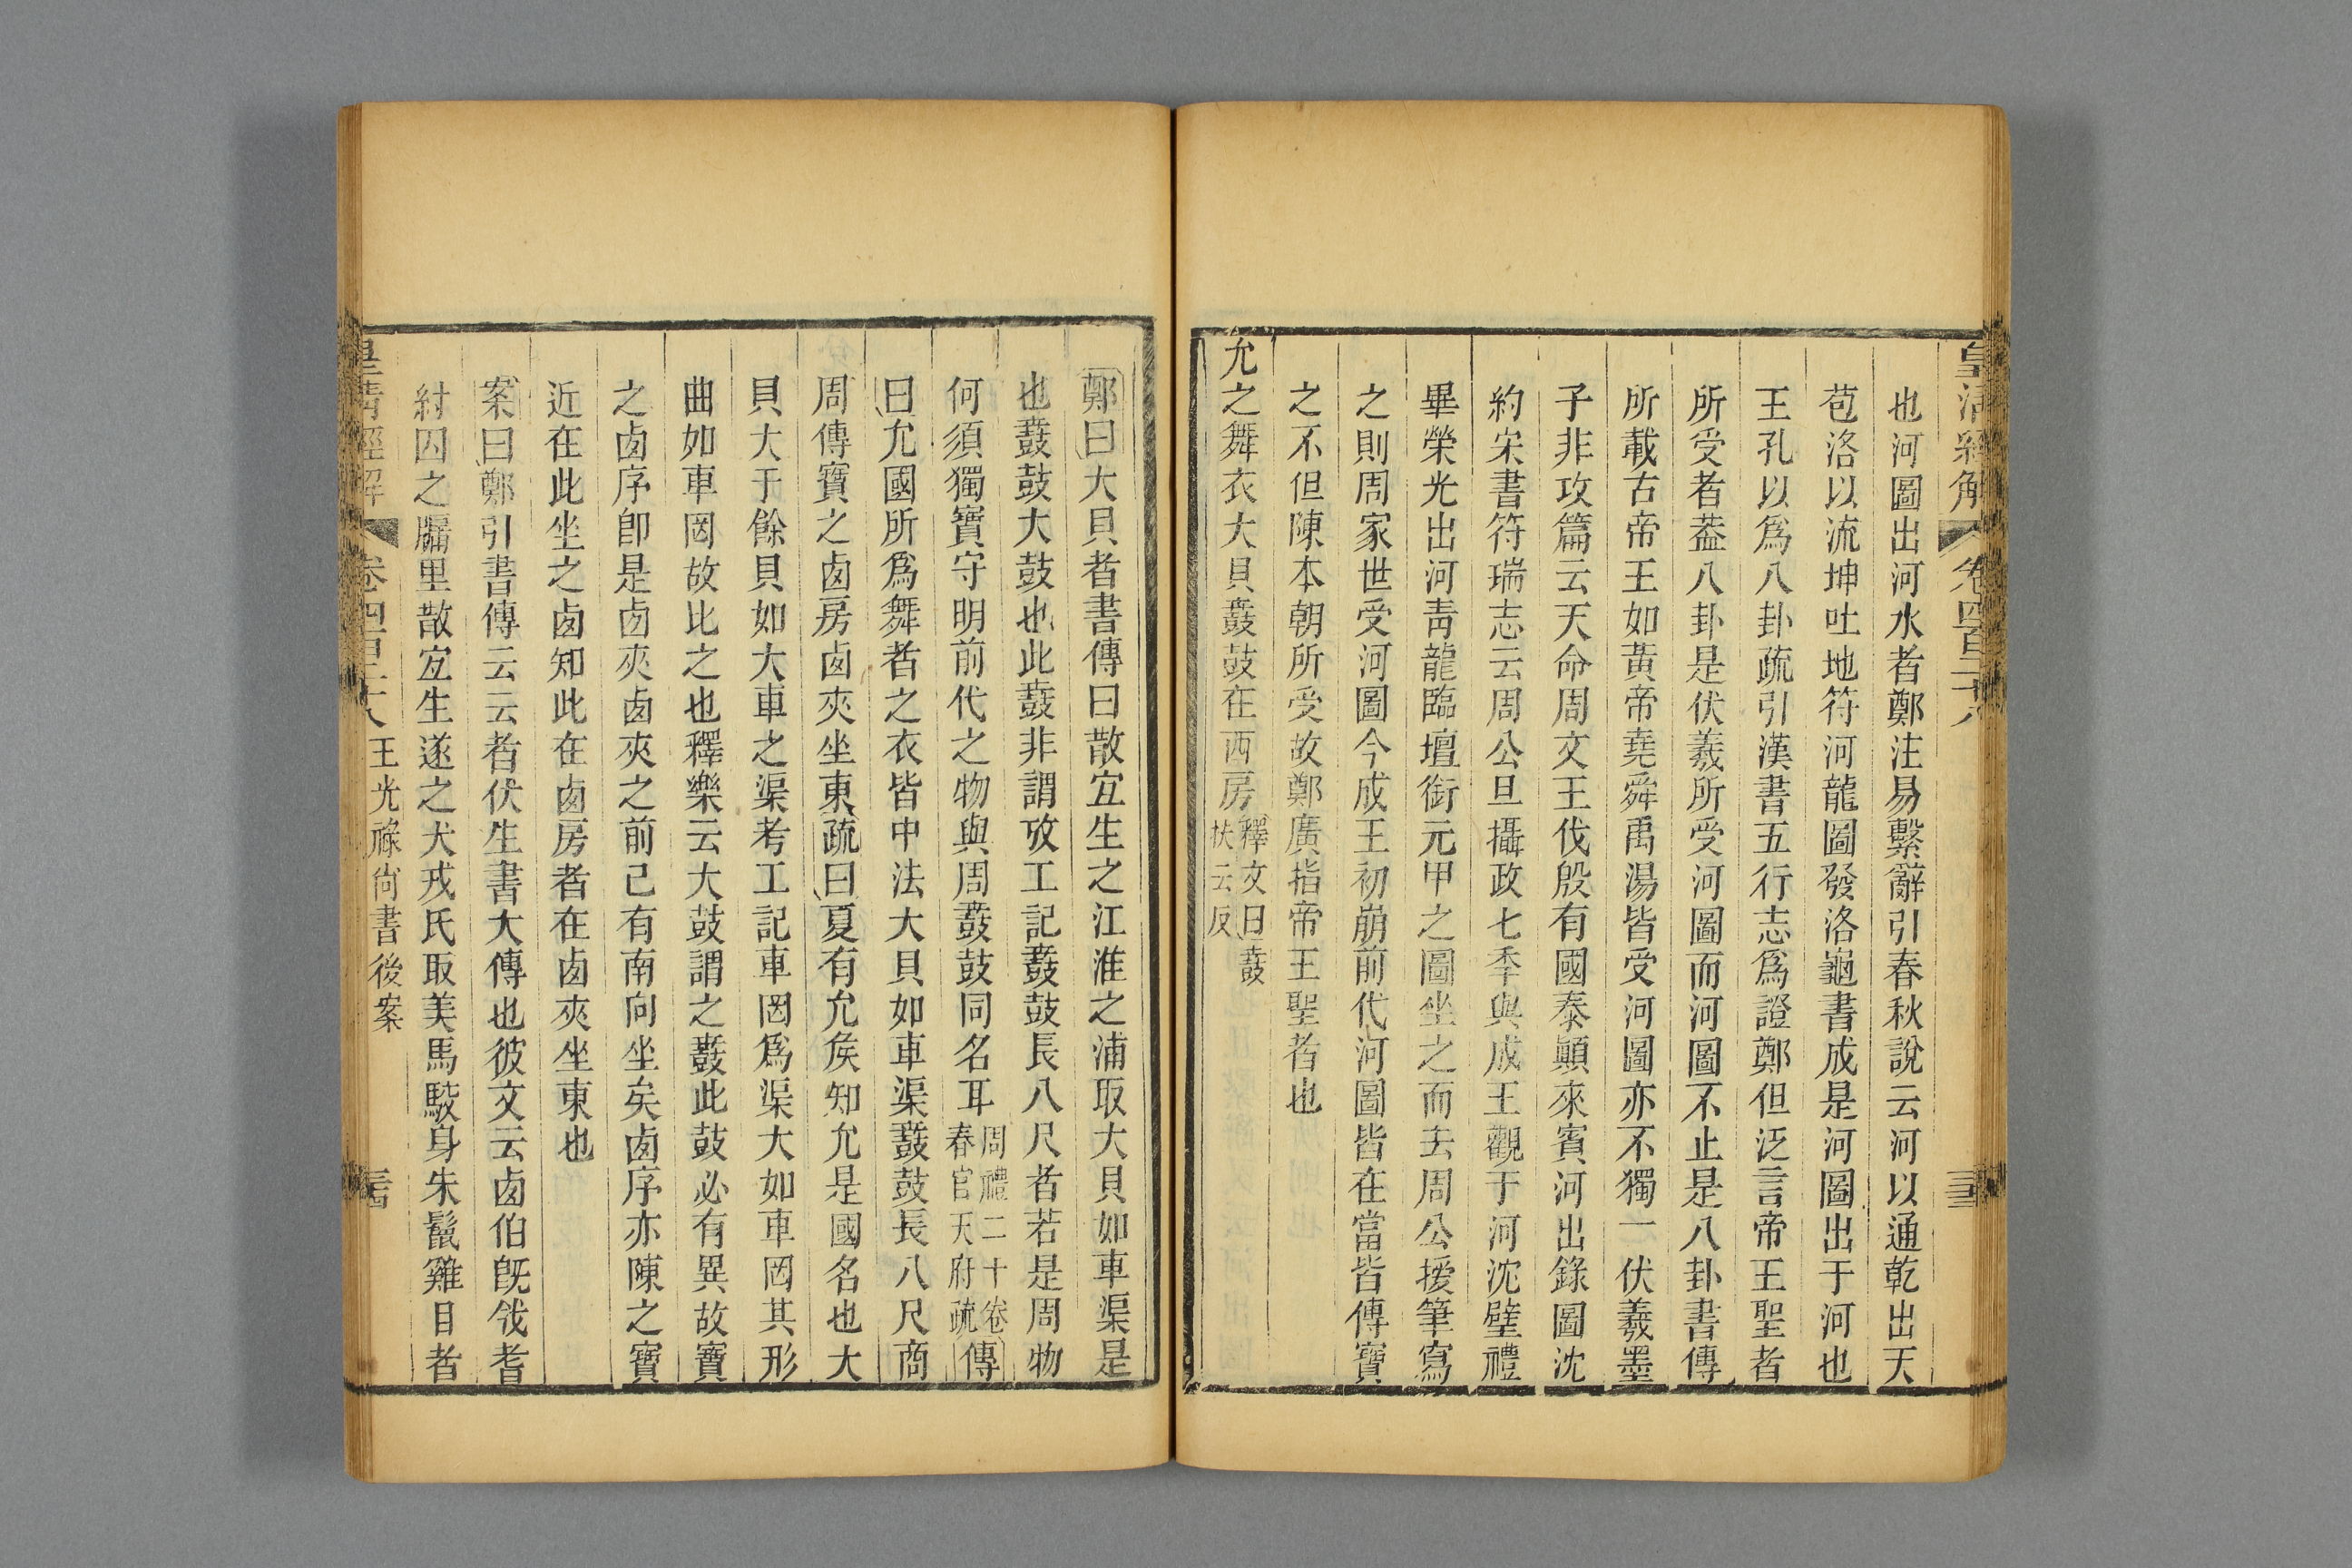 皇清經解 卷四百二十八 三
也河圖出河水者鄭注易繫辭引春秋說云河以通乾出天
苞洛以流坤吐地符河龍圖發洛龜書成是河圖出于河也
王孔以爲八卦疏引漢書五行志爲證鄭但泛言帝王聖者
所受者葢八卦是伏羲所受河圖而河圖不止是八卦書傳
所載古帝王如黃帝堯舜禹湯皆受河圖亦不獨一伏羲墨
子非攻篇云天命周文王伐殷有國泰顚來賓河出錄圖沈
約宋書符瑞志云周公旦攝政七秊與成王觀于河沈璧禮
畢榮光出河靑龍臨壇銜元甲之圖坐之而去周公援筆寫
之則周家世受河圖今成王初崩前代河圖皆在當皆傳寶
之不但陳本朝所受故鄭廣指帝王聖者也
允之舞衣大貝鼖鼓在西房釋文曰鼖扶云反
鄭曰大貝者書傳曰散宜生之江淮之浦取大貝如車渠是
也鼖鼓大鼓也此鼖非謂攷工記鼖鼓長八尺者若是周物
何須獨寶守明前代之物與周鼖鼓同名耳周禮二十卷春官天府疏傳
曰允國所爲舞者之衣皆中法大貝如車渠鼖鼓長八尺商
周傳寶之卤房卤夾坐東疏曰夏有允矦知允是國名也大
貝大于餘貝如大車之渠考工記車罔爲渠大如車罔其形
曲如車罔故比之也釋樂云大鼓謂之鼖此鼓必有異故寶
之卤序卽是卤夾卤夾之前已有南向坐矣卤序亦陳之寶
近在此坐之卤知此在卤房者在卤夾坐東也
案曰鄭引書傳云云者伏生書大傳也彼文云卤伯旣戗耆
紂囚之牖里散宜生遂之犬戎氏取美馬駮身朱鬣雞目者
皇清經解 卷四百二十八 王光祿尙書後案